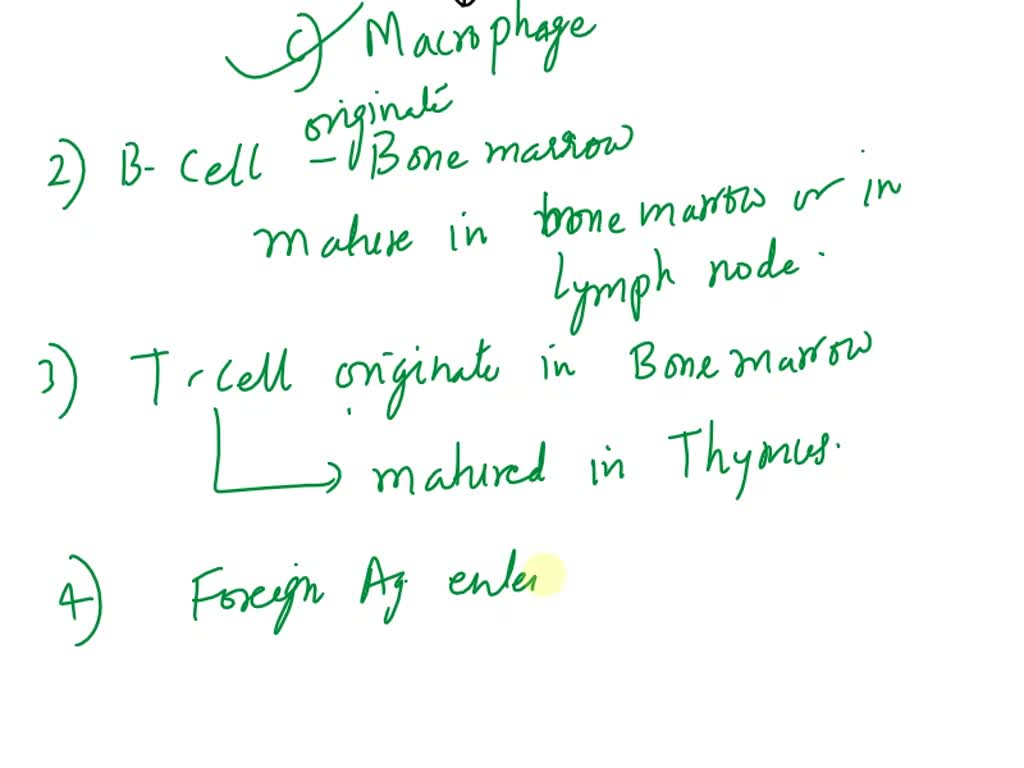 c) Macrophage
originate
2) B- Cell - Bone marrow
mature in bone marrow or in
lymph node.
3) T-cell originate in Bone marrow
matured in Thymus.
4) Foreign Ag enter